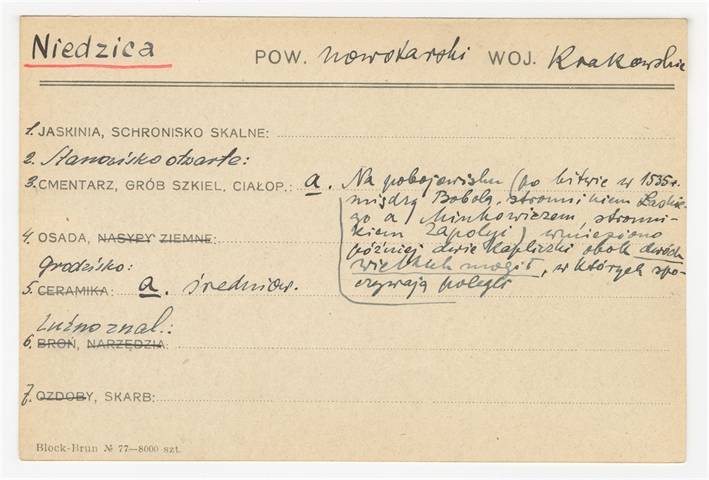 Niedzica POW. nowotarski WOJ. Krakowskie
1. JASKINIA, SCHRONISKO SKALNE:
2. Stanowisko otwarte:
3. CMENTARZ, GRÓB SZKIEL, CIAŁOP.: a. Na pobojowisku (po bitwie w 1535 r.
między Bobolą, stronnikiem Łaskie-
go a Minkowiczem, stronni-
4. OSADA, NASYPY ZIEMNE: kiem Zapolyi) wzniesiono
później dwie kapliczki obok dwóch
Grodzisko: wielkich mogił, w których spo-
5. CERAMIKA: a. średniow. czywają polegli
Luźno znal.:
6. BROŃ, NARZĘDZIA:
7. OZDOBY, SKARB:
Block-Brun № 77—8000 szt.